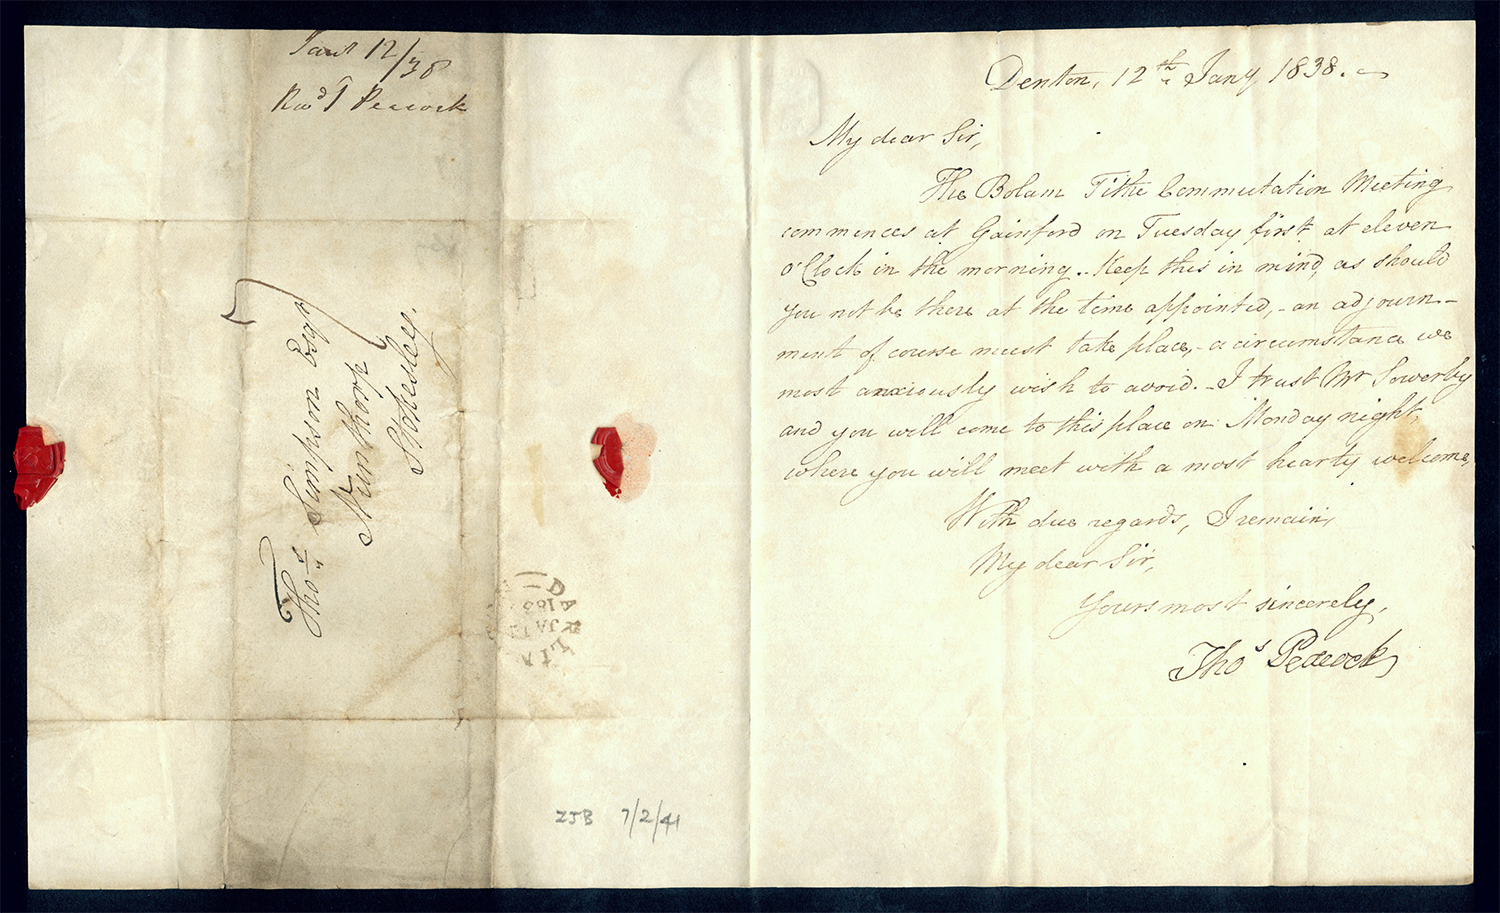 Jany 12/38
Revd T Peacock
Thos Simpson Esqr
Nunthorp
Stokesley.
DARLIN
JA12
ZJB 7/2/41
Denton, 12th Jany 1838.
My dear Sir,
The Bolam Tithe Commutation Meeting
commences at Gainford on Tuesday first at eleven
o'Clock in the morning.- Keep this in mind, as should
you not be there at the time appointed,- an adjourn-
ment of course must take place,- a circumstance we
most anxiously wish to avoid.- I trust Mr Sowerby
and you will come to this place on Monday night,
where you will meet with a most hearty welcome,
With due regards, I remain,
My dear Sir,
Yours most sincerely,
Thos Peacock